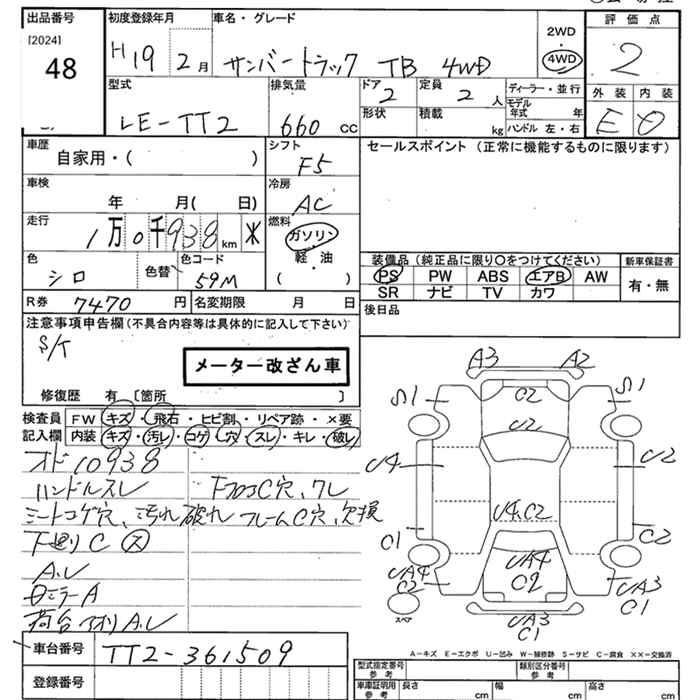 出品番号
[2024]
48
初度登録年月
H19 2月
車名・グレード
サンバートラック TB 4WD
2WD
・
4WD
評価点
2
外装 内装
E D
型式
LE-TT2
排気量
660 cc
ドア
2
定員
2 人
形状
積載
kg
ディーラー・並行
モデル年式 年
ハンドル 左・右
車歴
自家用・( )
シフト
F5
セールスポイント (正常に機能するものに限ります)
車検
年 月( 日)
冷房
AC
走行
1万0千938km ※
燃料
ガソリン
軽・油
( )
色
シロ
色替
色コード
59M
装備品(純正品に限り○をつけてください)
新車保証書
PS PW ABS エアB AW
SR ナビ TV カワ
有・無
R券 7470 円
名変期限 月 日
後日品
注意事項申告欄(不具合内容等は具体的に記入して下さい)
S/T
メーター改ざん車
修復歴 有 〔箇所 〕
検査員
記入欄
FW キズ・飛石・ヒビ割・リペア跡・×要
内装 キズ・汚レ・コゲ・穴・スレ・キレ・破レ
オド10938
ハンドルスレ FフロアC穴、ワレ
シートコゲ穴、汚れ破れ フレームC穴、欠損
下廻りC ス
A.U
Bミラー A
荷台アオリA.U
A3 A2
S1 S1
C2
U2
U4 U2
U4,C2
C1 C2
UA4
C2
UA4
C2
UA3
C1
UA3
C1
スペア
A-キズ E-エクボ U-凹み W-補修跡 S-サビ C-腐食 ××-交換済
車台番号
TT2-361509
登録番号
型式指定番号
参考
類別区分番号
参考
車庫証明用
参考
長さ cm
幅 cm
高さ cm